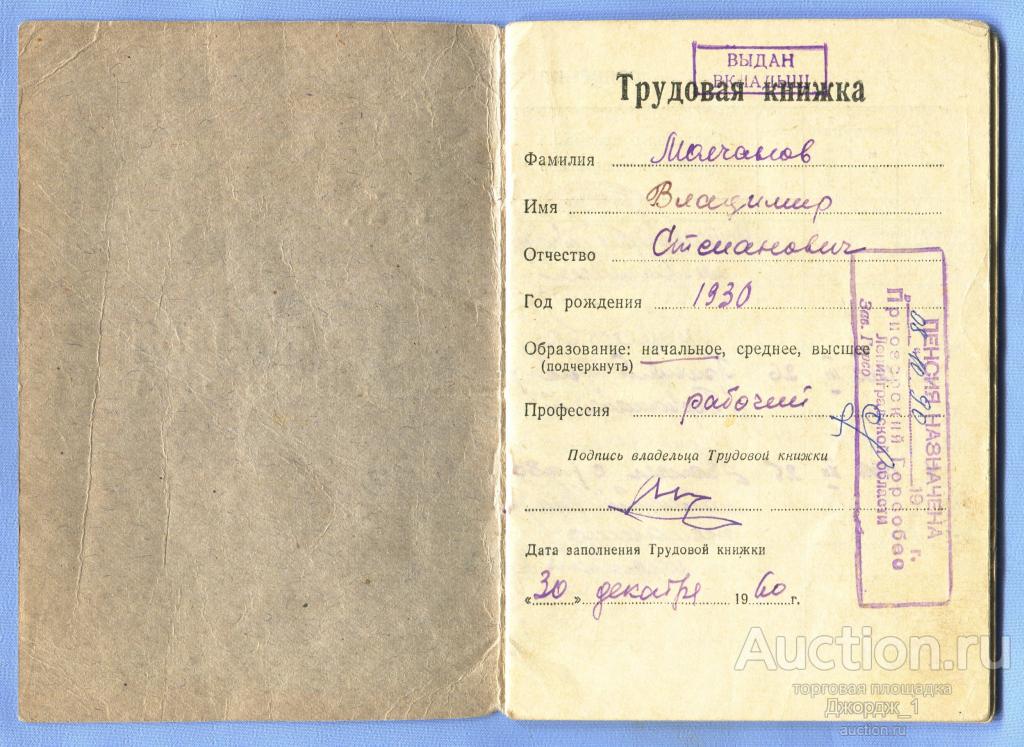 ВЫДАН
ВКЛАДЫШ
Трудовая книжка
Фамилия Молчанов
Имя Владимир
Отчество Степанович
Год рождения 1930
Образование: начальное, среднее, высшее
(подчеркнуть)
Профессия рабочий
Подпись владельца Трудовой книжки
Дата заполнения Трудовой книжки
«30» декабря 1960 г.
ПЕНСИЯ НАЗНАЧЕНА
08 19 г.
Приозерский Горсобес
Ленинградской области
Зав. Горсо
Auction.ru
торговая площадка
Джордж_1
auction.ru